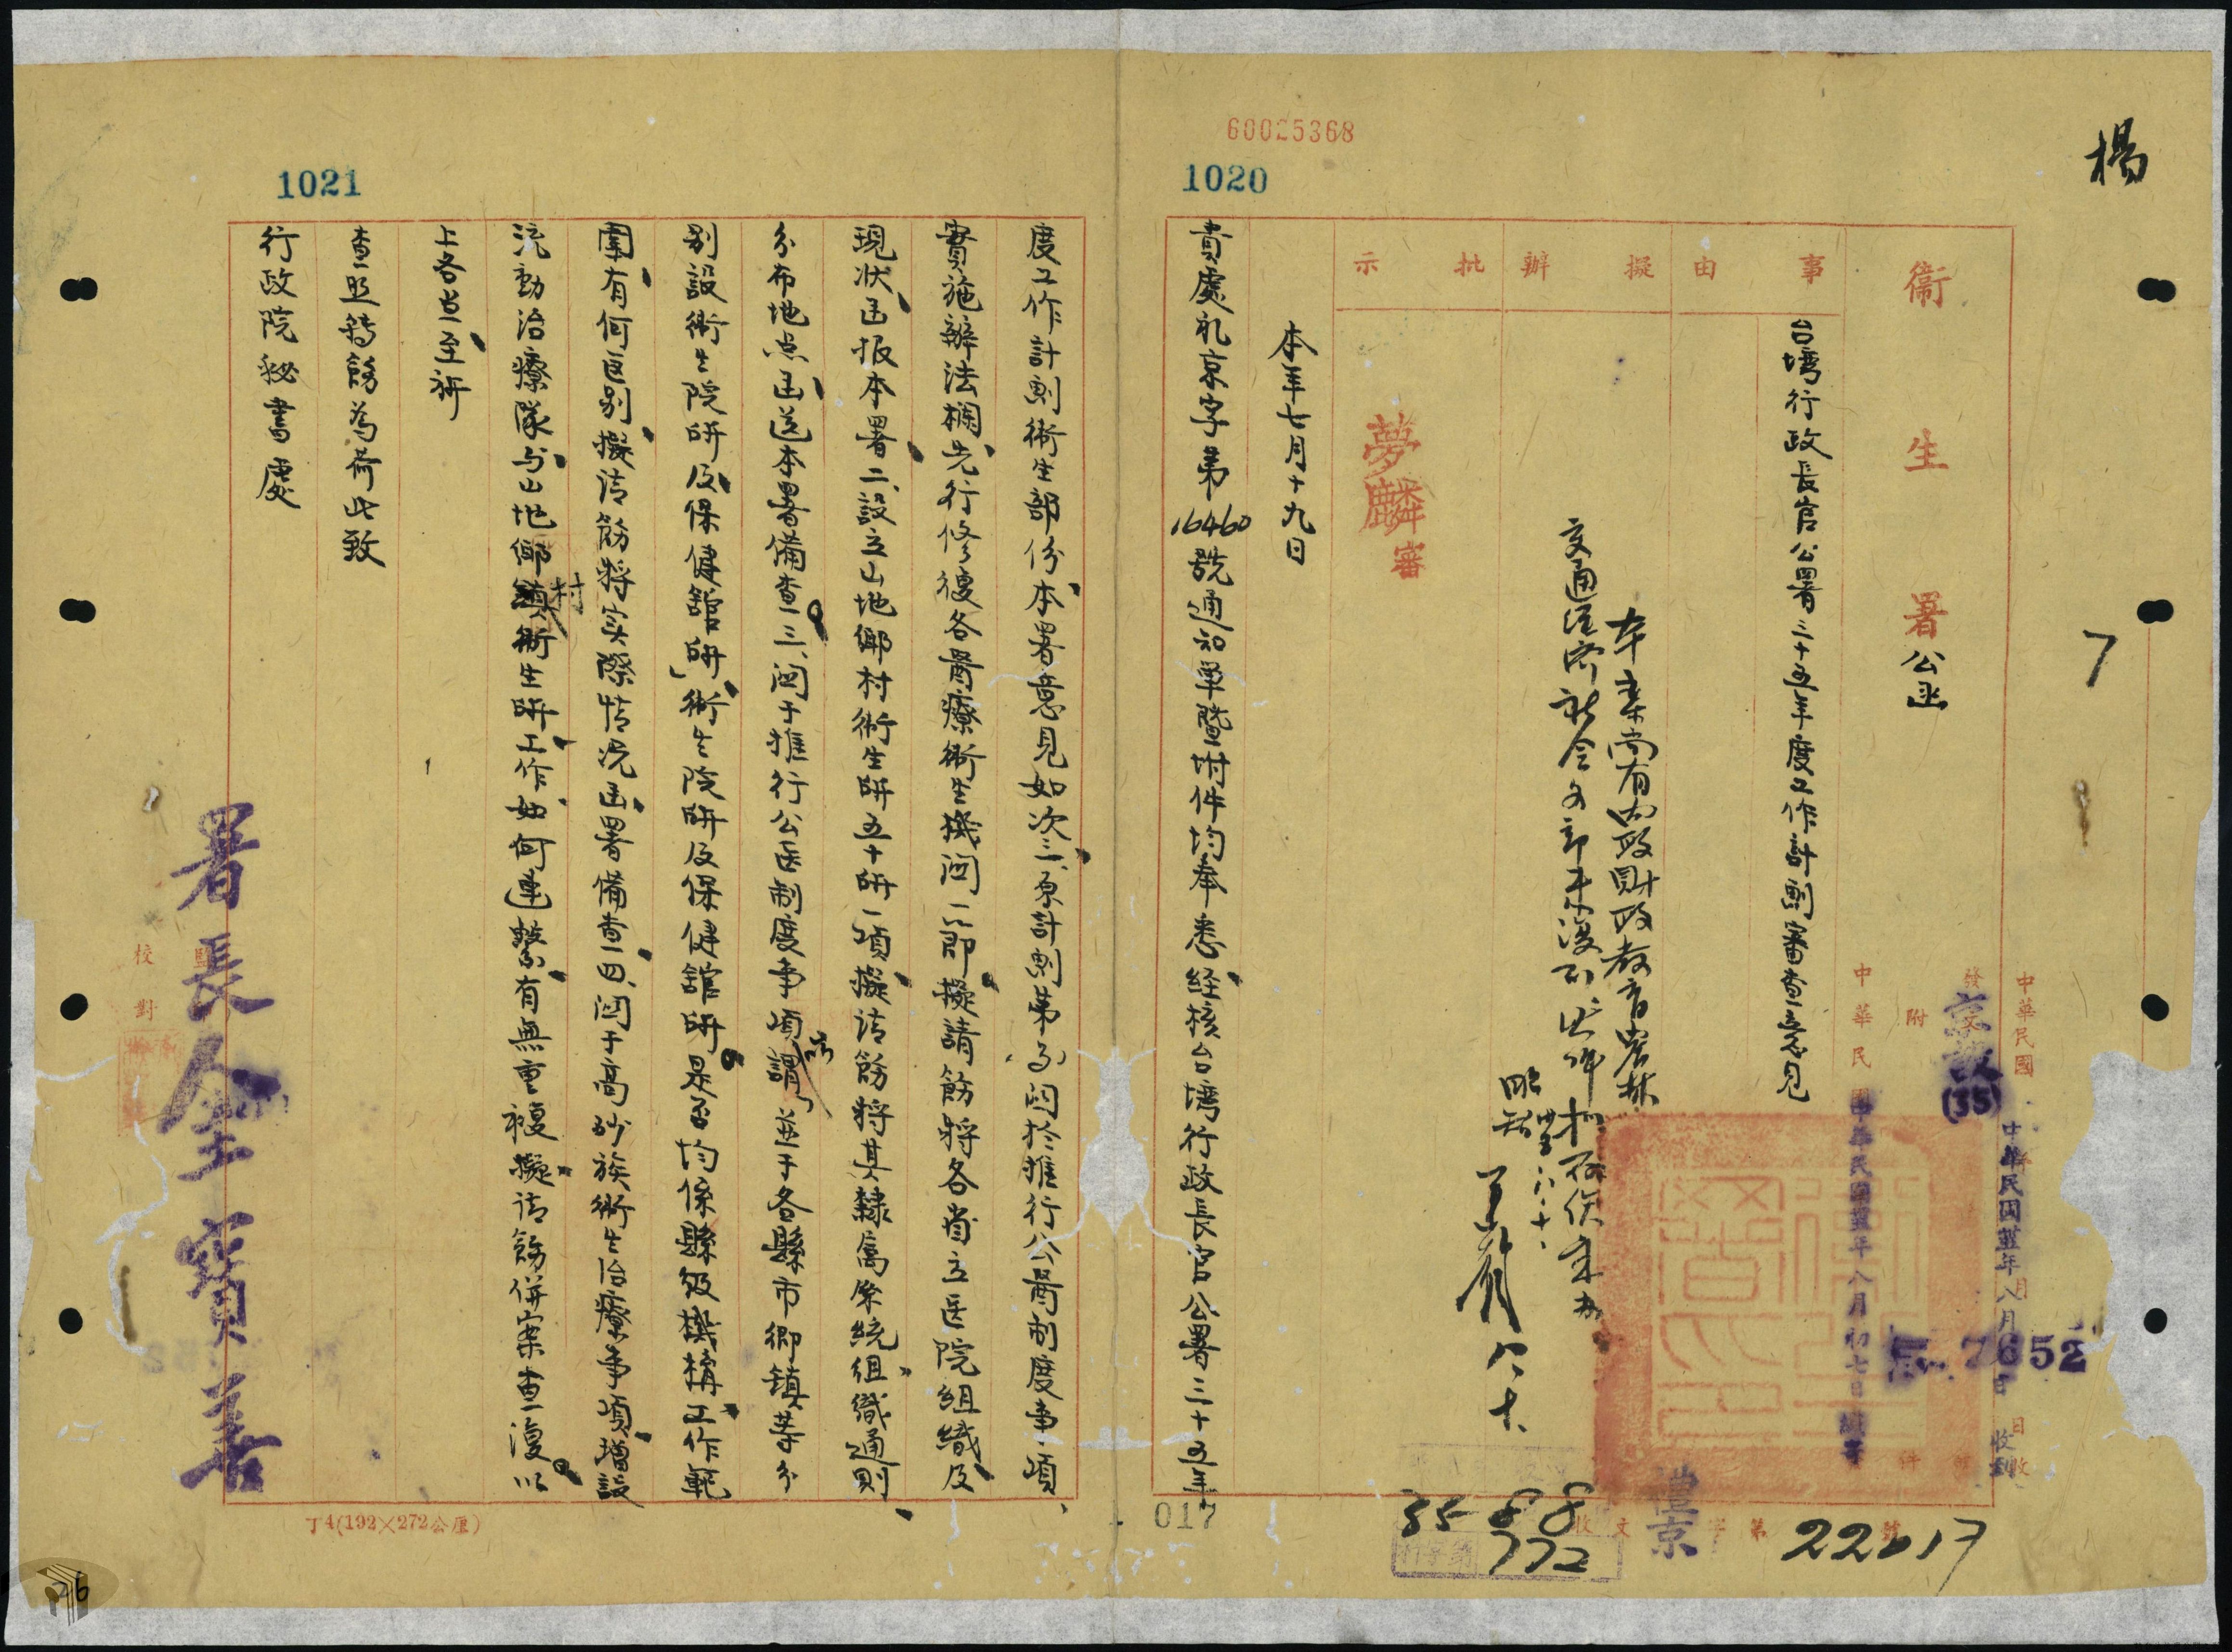 楊
60025368
1020
7
衞生署公函
中華民國
中華民國卅五年八月 日收到
發文
京
(35)
7652
附
件
中華民國
中華民國卅五年八月初七日
事由
台灣行政長官公署三十五年度工作計劃審查意見
擬辦
本案尚有內政財政教育農林
交通經濟社会各部未復
批示
八、十、
夢麟審
本年七月十九日
貴處礼京字第16460號通知單暨附件均奉悉経核台灣行政長官公署三十五年
收文字第22017號
禮京
35 8 8
772
017
1021
度工作計劃衛生部份本署意見如次一、原計劃第 関於推行公醫制度事項、
實施辦法欄先行修復各醫療衛生機関一節擬請飭將各省立医院組織及
現狀函报本署二、設立山地鄉村衛生所五十所一項擬請飭將其隸属系統組織通則
分布地点函送本署備查三、関于推行公医制度事項 並于各縣市鄉鎮等分
别設衛生院所及保健館所衛生院所及保健館所是否均係縣级機構工作範
圍有何区别擬請飭將实際情况函署備查四、関于高砂族衛生治療事項增設
流動治療隊与山地鄉村衛生所工作如何連繫有無重複擬請飭併案查復以
上各点至祈
查照轉飭為荷此致
行政院秘書處
署長金寶善
監
校對
丁4(192×272公厘)
76